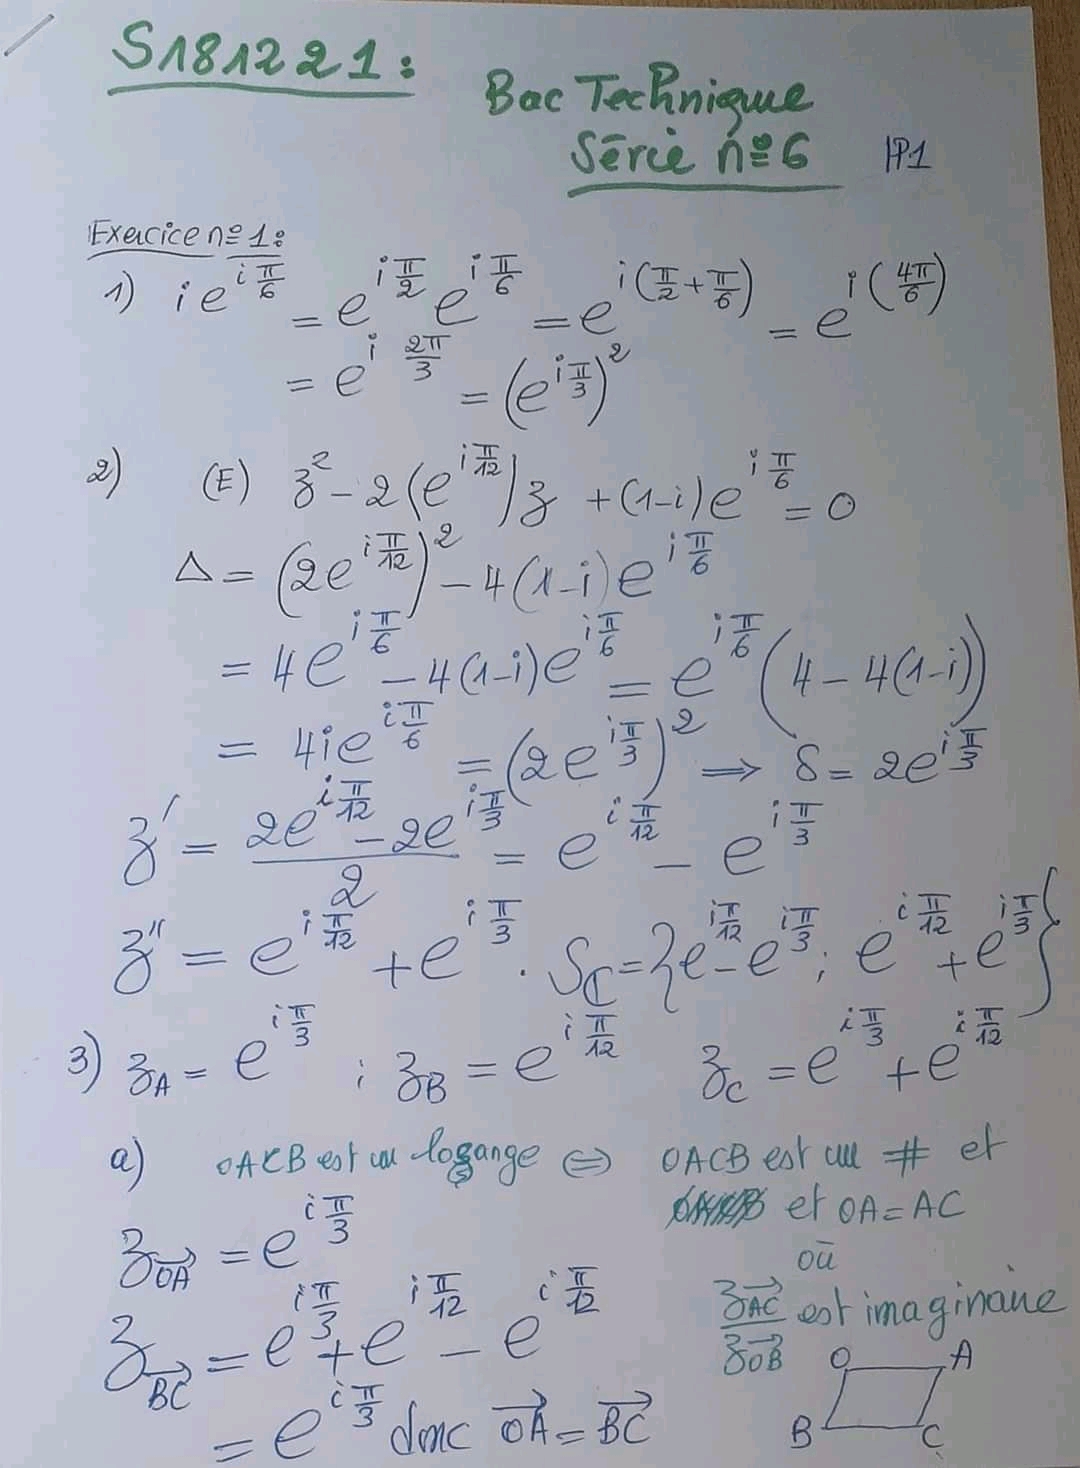 S181221:
Bac Technique
Série n°6 P1
Exercice n°1:
1) i e^{i π/6} = e^{i π/2} e^{i π/6} = e^{i(π/2 + π/6)} = e^{i(4π/6)}
= e^{i 2π/3} = (e^{i π/3})^2
2) (E) z^2 - 2(e^{i π/12})z + (1-i)e^{i π/6} = 0
Δ = (2e^{i π/12})^2 - 4(1-i)e^{i π/6}
= 4e^{i π/6} - 4(1-i)e^{i π/6} = e^{i π/6}(4 - 4(1-i))
= 4ie^{i π/6} = (2e^{i π/3})^2 ⟹ δ = 2e^{i π/3}
z' = (2e^{i π/12} - 2e^{i π/3})/2 = e^{i π/12} - e^{i π/3}
z'' = e^{i π/12} + e^{i π/3} . S_ℂ = {e^{i π/12} - e^{i π/3} ; e^{i π/12} + e^{i π/3}}
3) z_A = e^{i π/3} ; z_B = e^{i π/12} z_C = e^{i π/3} + e^{i π/12}
a) OACB est un losange ⟺ OACB est un # et
et OA = AC
où
z_{\vec{OA}} = e^{i π/3}
z_{\vec{AC}}/z_{\vec{OB}} est imaginaire
z_{\vec{BC}} = e^{i π/3} + e^{i π/12} - e^{i π/12}
O A
B C
= e^{i π/3} donc \vec{OA} = \vec{BC}